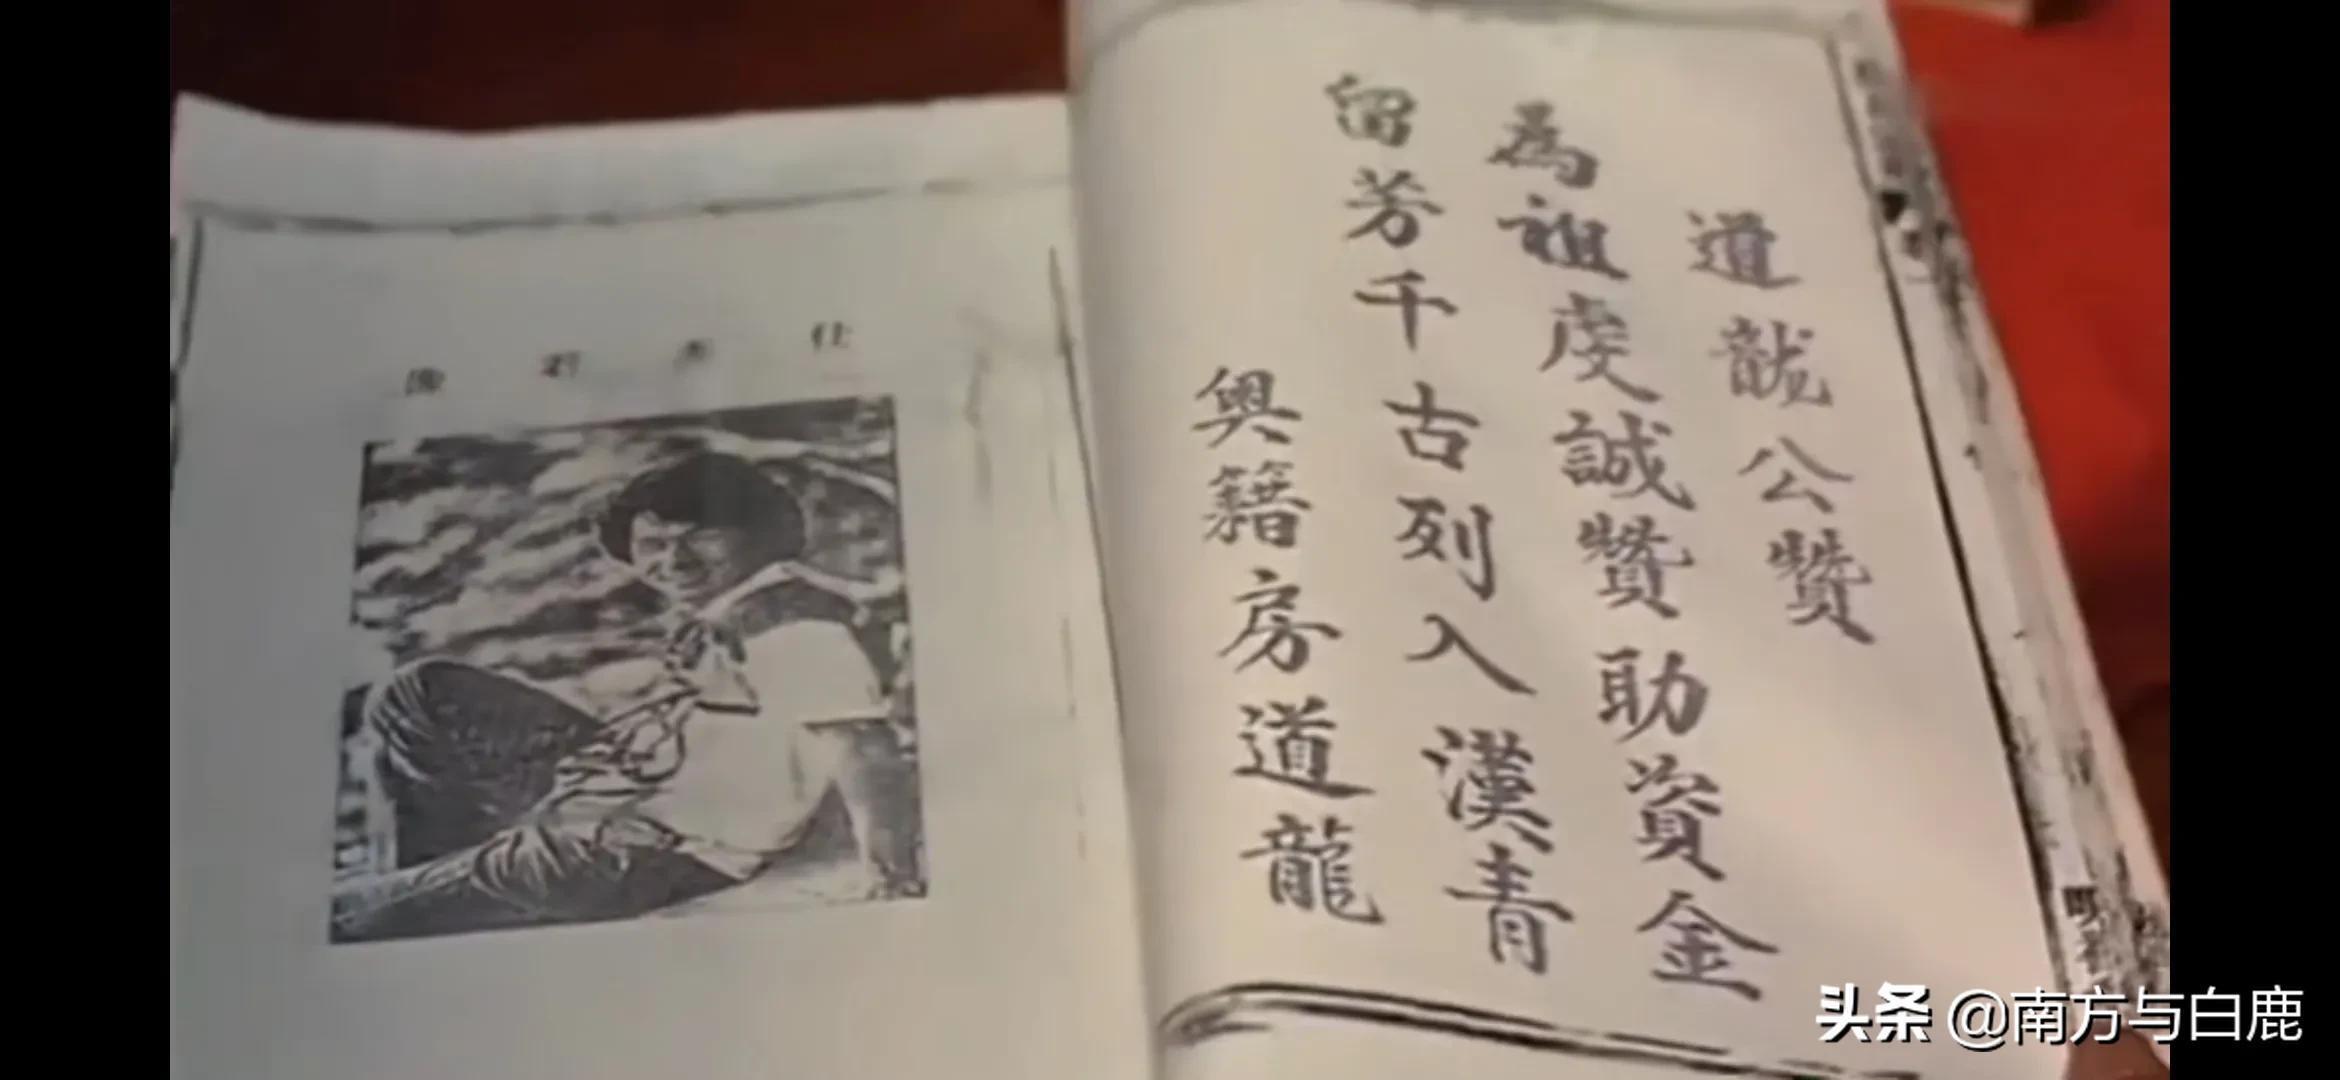 道龍公贊
為祖虔誠贊助資金
留芳千古列入漢青
與籍房道龍
仕杰君像
头条 @南方与白鹿